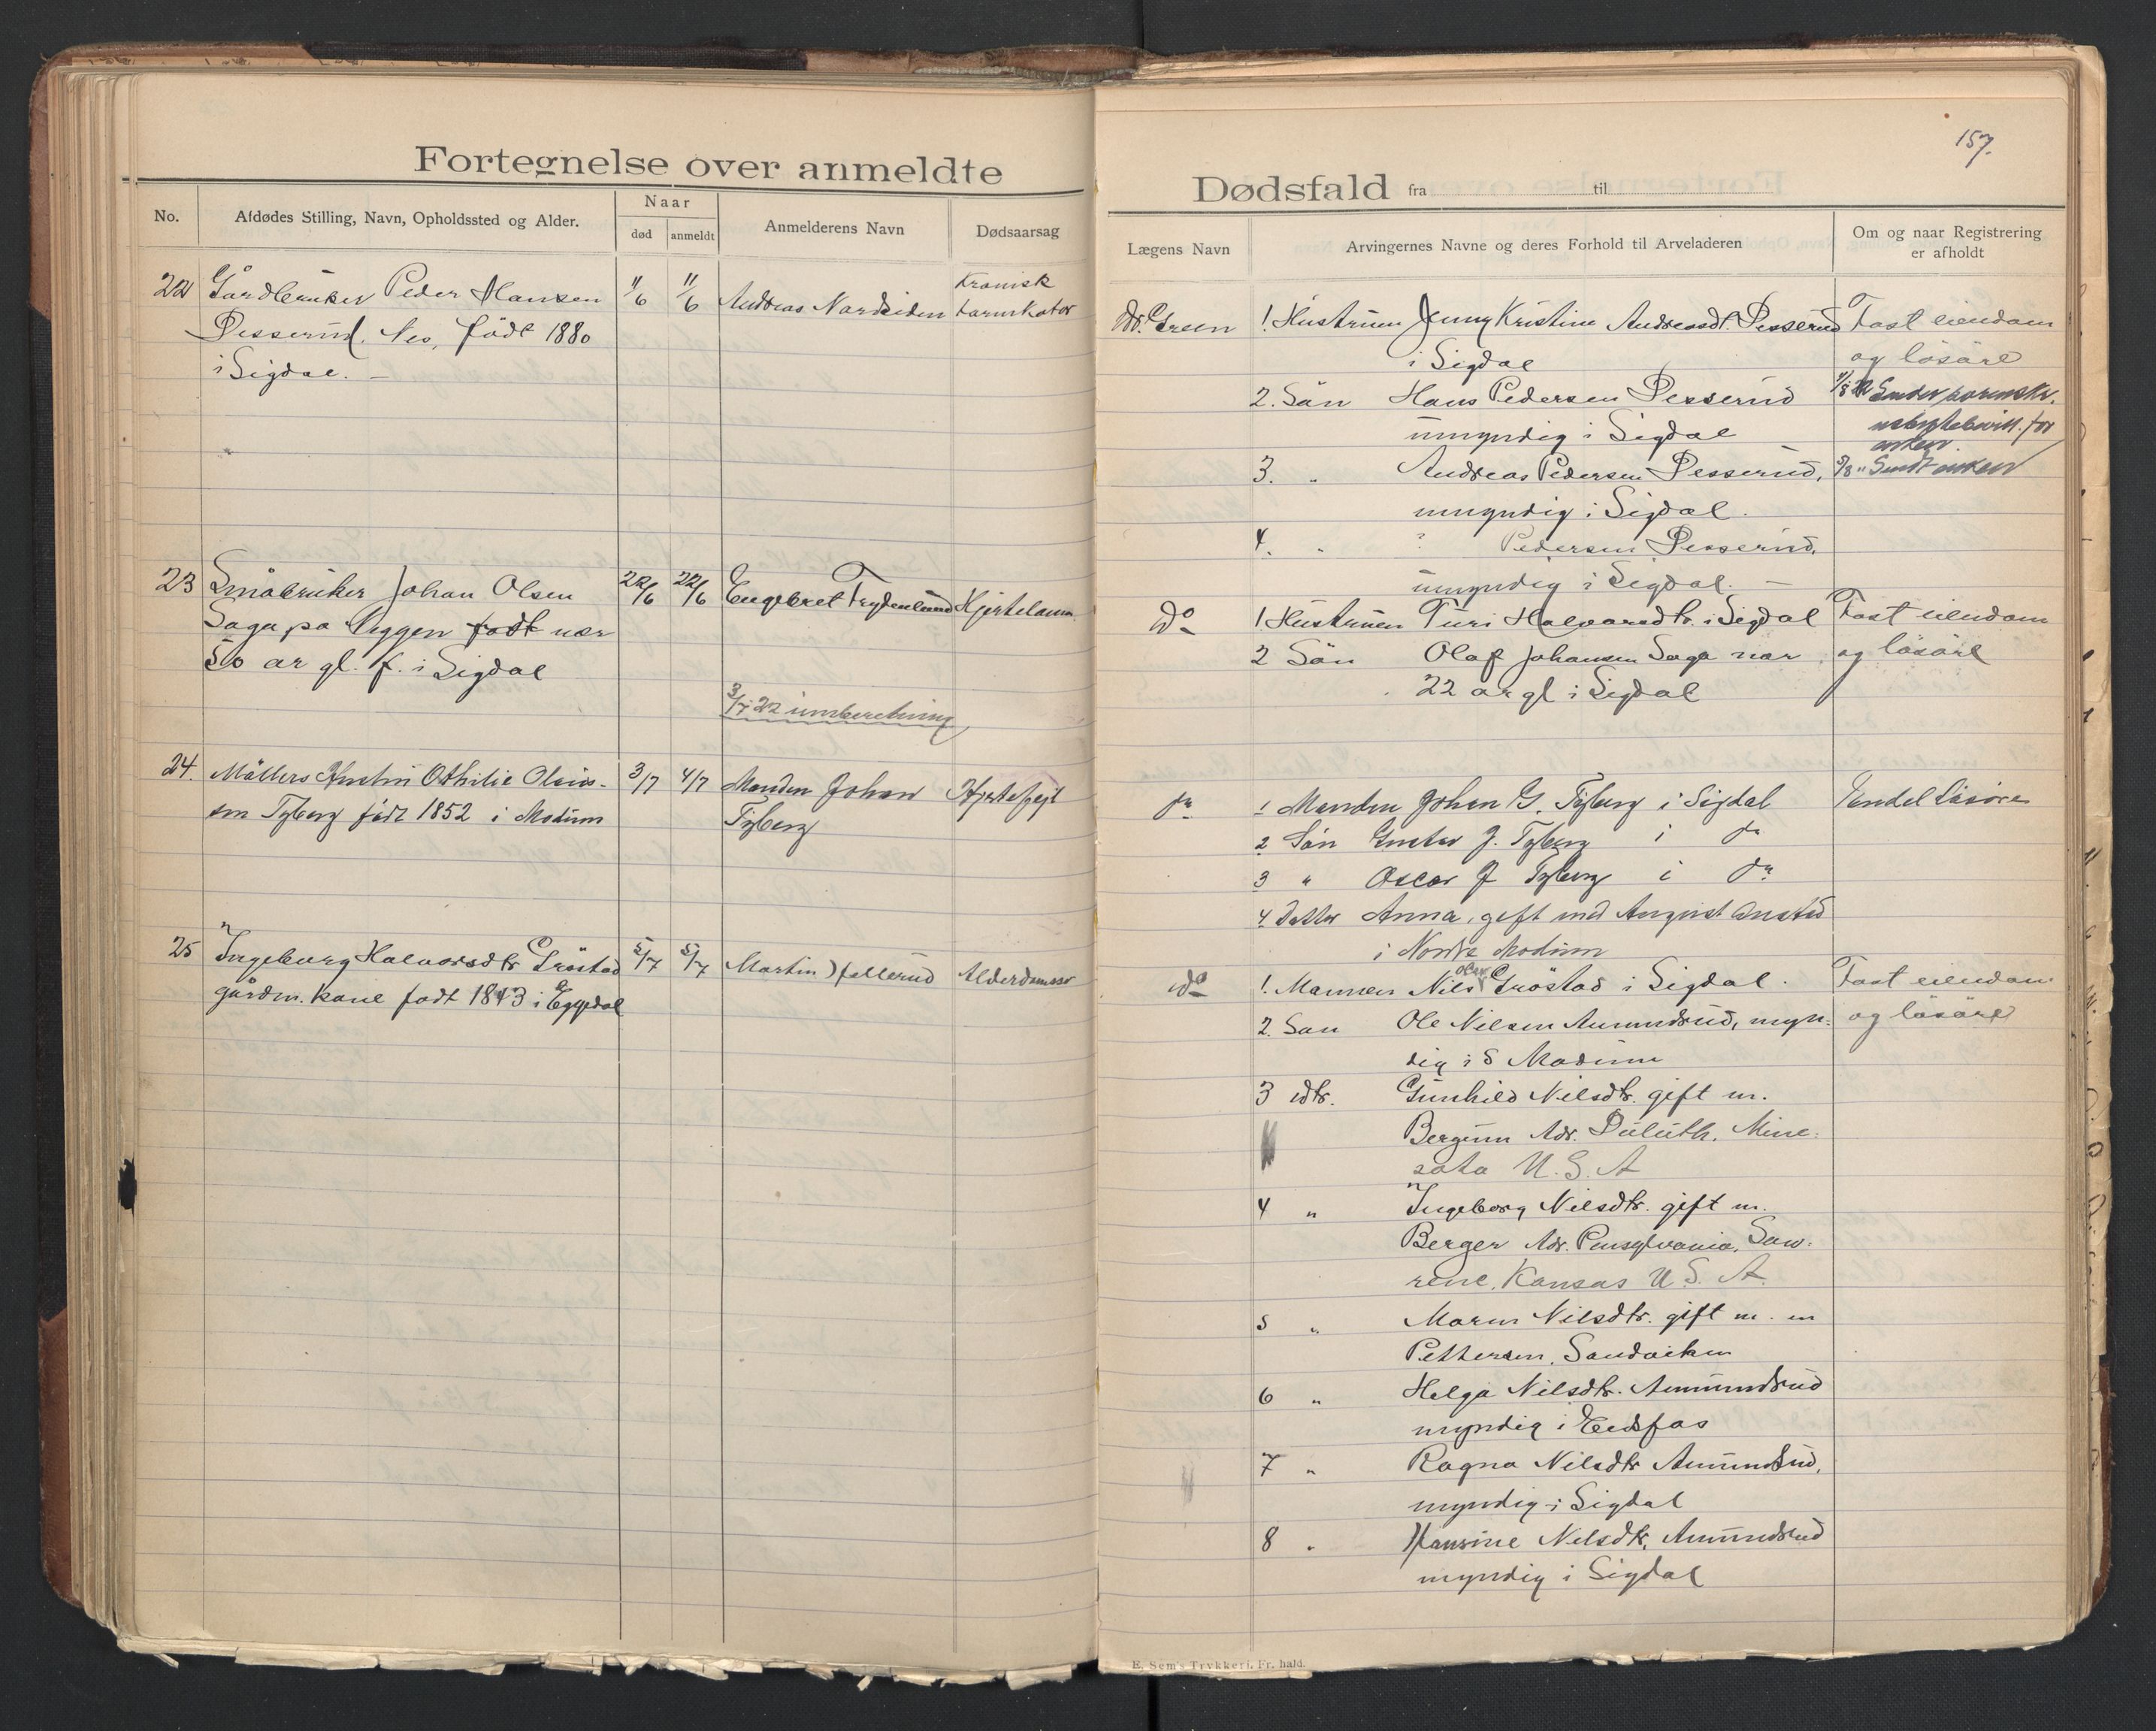 Fortegnelse over anmeldte
No.
Afdødes Stilling, Navn, Opholdssted og Alder.
Naar
død
anmeldt
Anmelderens Navn
Dødsaarsag
22 Gårdbruker Peder Hansen 11/6 11/6 Andreas Nordsiden Kronisk
Pesserud, Nes, født 1880 tarmkatar
i Sigdal. —
23 Småbruker Johan Olsen 22/6 22/6 Engebret Frydenlund Hjertelam.
Saga på Eggen født nær
50 år gl. f. i Sigdal
3/7 22 innberetning
24. Møllers Hustru Othilie Olsius- 3/7 4/7 Manden Johan Hjertefejl
sen Tyberg født 1852 i Modum Tyberg
25 Ingeborg Halvorsdtr Grøstad 5/7 5/7 Martin Hellerud Alderdomssv
gårdm. kone født 1843 i Eggedal
157.
Dødsfald fra til
Lægens Navn
Arvingernes Navne og deres Forhold til Arveladeren
Om og naar Registrering
er afholdt
Dr. Green 1. Hustruen Jenny Kristine Andreasdt. Pesserud Fast eiendom
i Sigdal og løsøre
2. Søn Hans Pedersen Pesserud 1/8 22 Sender
umyndig i Sigdal uskiftebevill. for
enken
3. " Andreas Pedersen Pesserud, 3/8 " Sendt enken
umyndig i Sigdal.
4. " ? Pedersen Pesserud,
umyndig i Sigdal. —
do 1 Hustruen Turi Halvorsdtr. i Sigdal Fast eiendom
2 Søn Olaf Johansen Saga nær og løsøre
22 år gl i Sigdal
do 1 Manden Johan G. Tyberg i Sigdal Endel løsøre
2 Søn Gustav J. Tyberg i do
3 " Oscar J Tyberg i do
4 Datter Anna, gift med August
i Nordre Modum
do 1. Mannen Nils Olsen Grøstad i Sigdal. Fast eiendom
2. Søn Ole Nilsen Amundrud, myn- og løsøre
dig i S Modum
3 dtr. Gunhild Nilsdtr. gift m.
Bergum Adr. Duluth. Mine-
sota U.S.A
4 " Ingeborg Nilsdtr. gift m.
Berger Adr. Pensylvania, Saw-
rene, Kansas U.S.A.
5 " Maren Nilsdtr. gift m. en
Pettersen, Sandviken
6 " Helga Nilsdtr. Amundrud
myndig i Eidsfos
7 " Ragna Nilsdtr Amundrud,
myndig i Sigdal
8 " Hansine Nilsdtr. Amundrud
myndig i Sigdal
E. Sem's Trykkeri, Fr. hald.